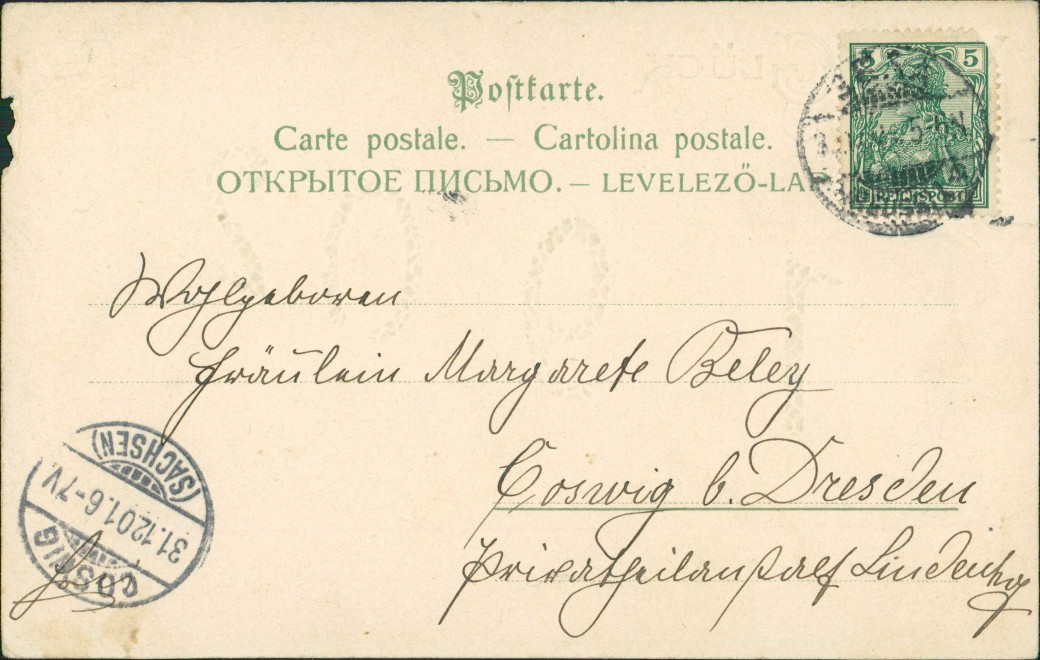 Postkarte.
Carte postale. — Cartolina postale.
ОТКРЫТОЕ ПИСЬМО. — LEVELEZŐ-LAP
5 5
REICHSPOST
Wohlgeboren
Fräulein Margarete Beley
Coswig b. Dresden
Privatheilanstalt Lindenhof
COSWIG
31.12.01. 6-7V.
(SACHSEN)